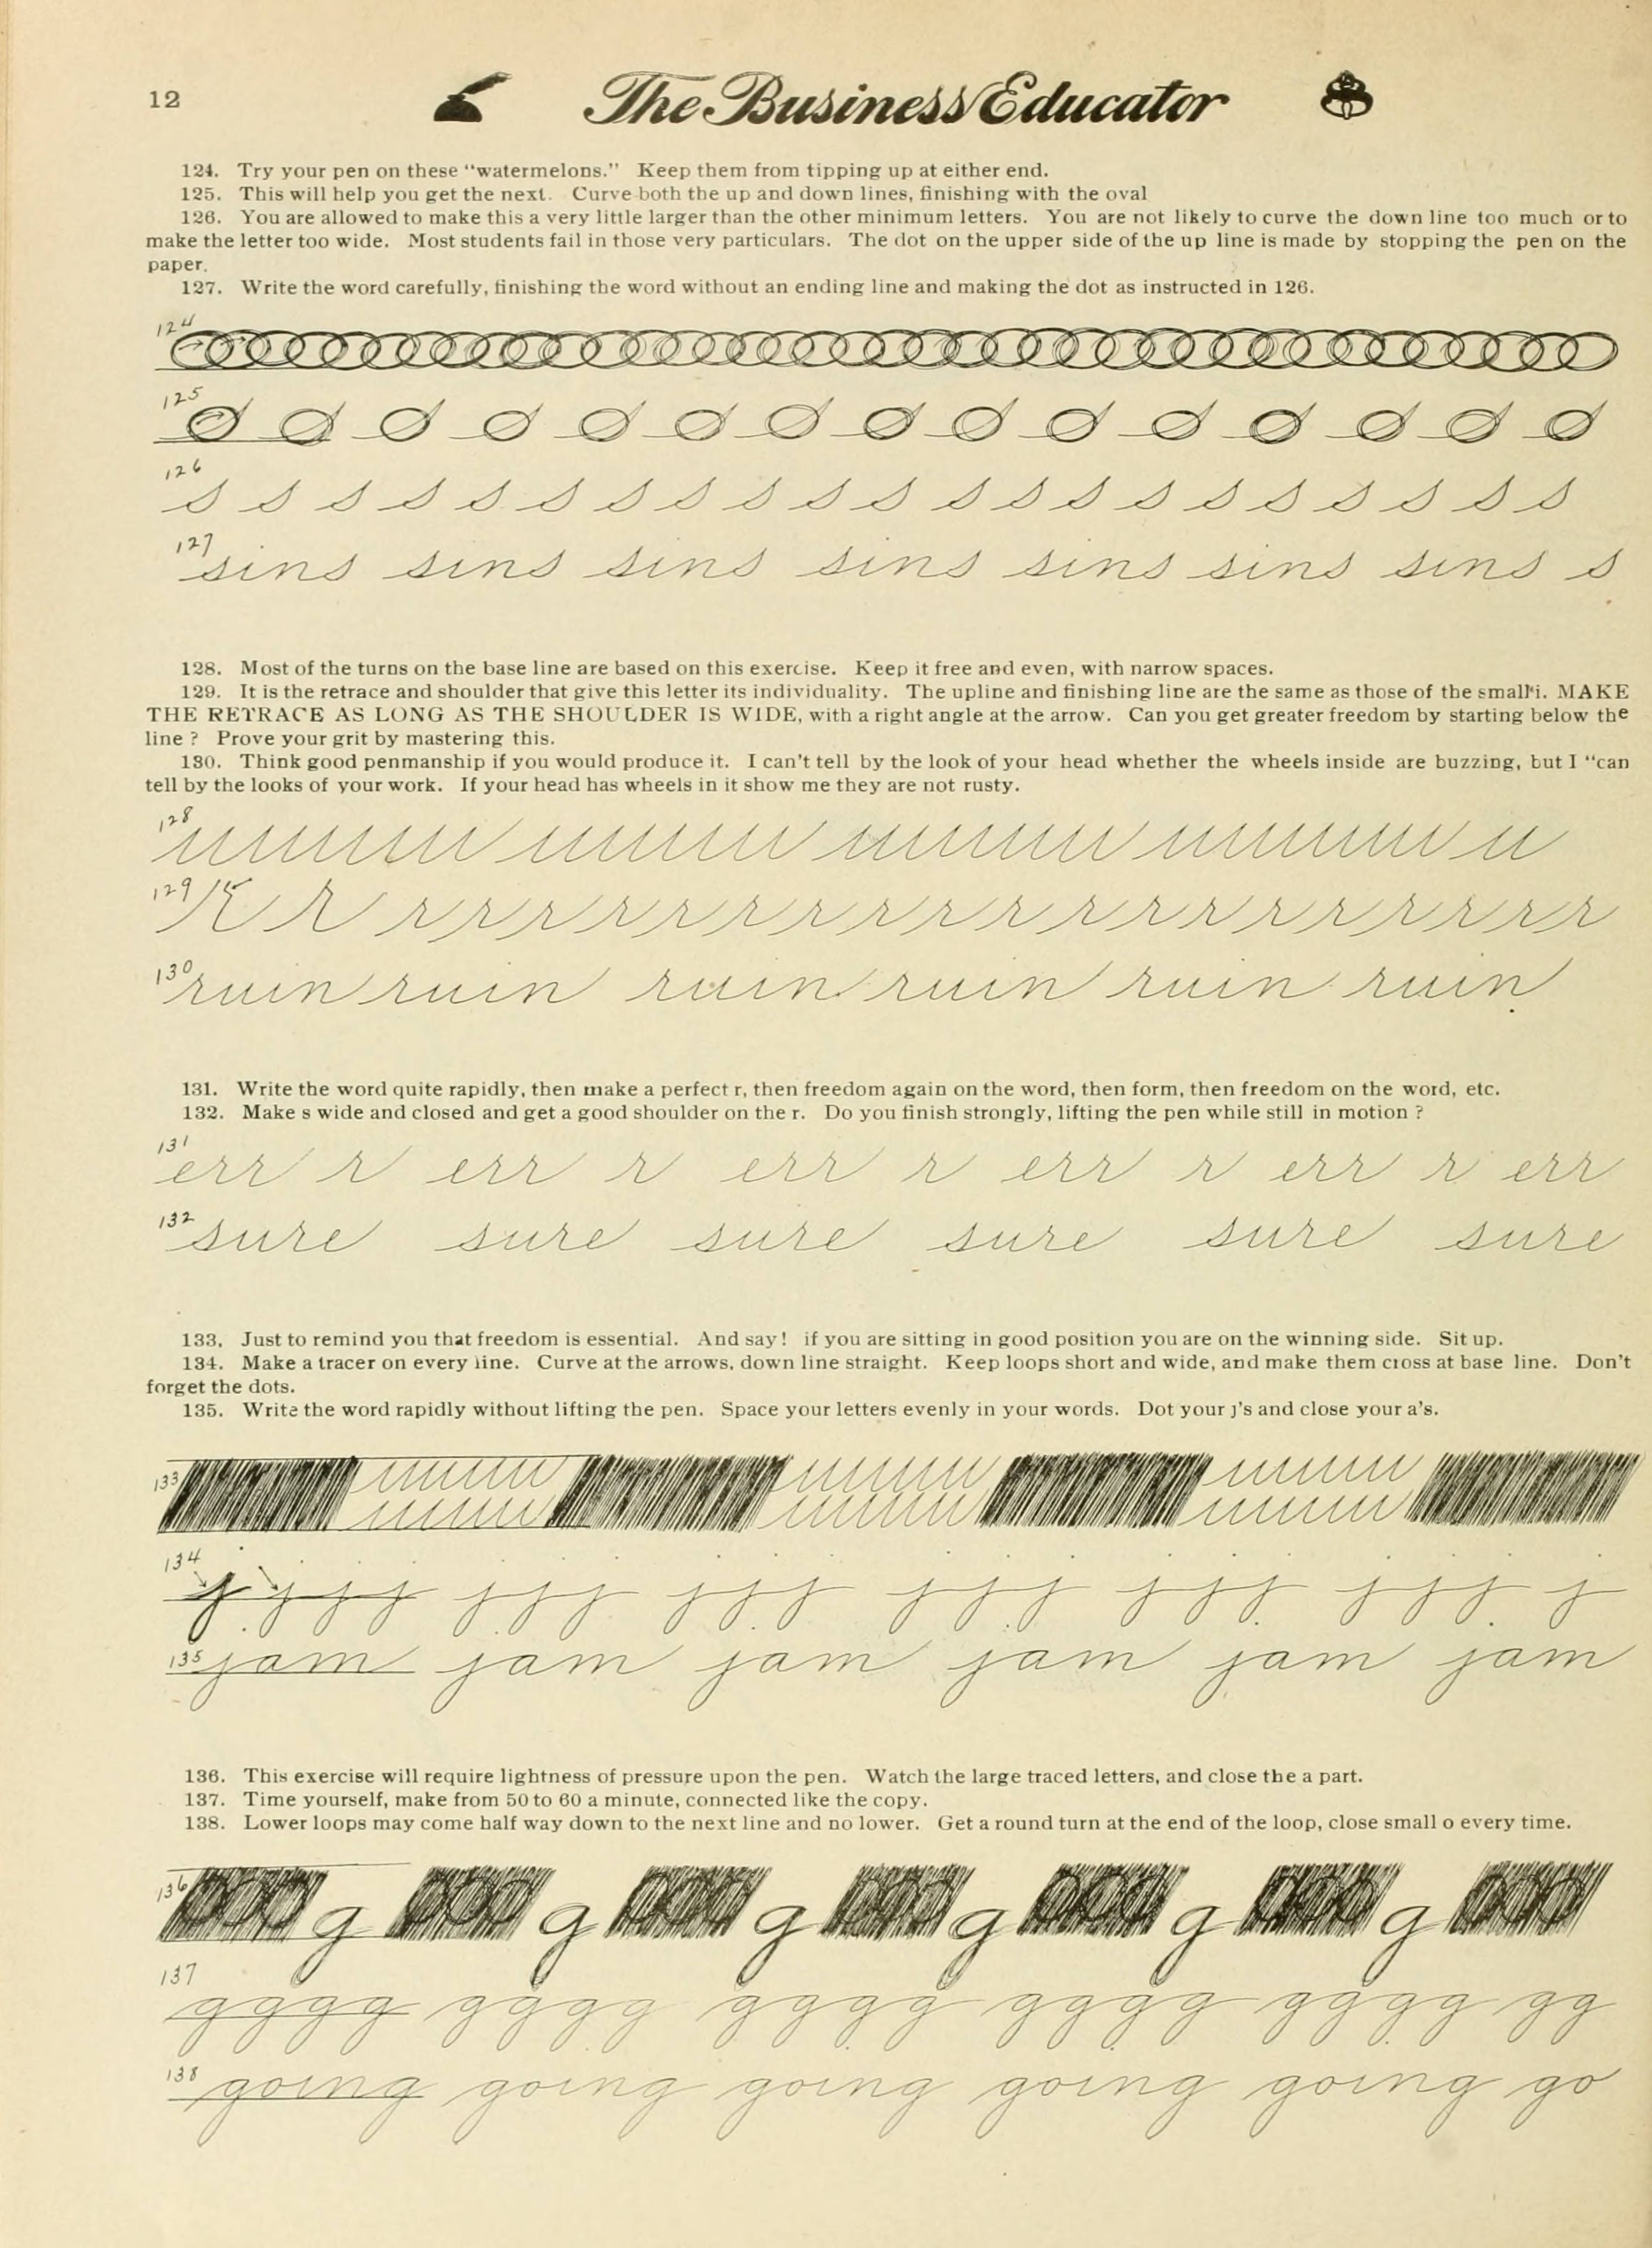 12
The Business Educator
124. Try your pen on these "watermelons." Keep them from tipping up at either end.
125. This will help you get the next. Curve both the up and down lines, finishing with the oval
126. You are allowed to make this a very little larger than the other minimum letters. You are not likely to curve the down line too much or to
make the letter too wide. Most students fail in those very particulars. The dot on the upper side of the up line is made by stopping the pen on the
paper.
127. Write the word carefully, finishing the word without an ending line and making the dot as instructed in 126.
124
125
126
s s s s s s s s s s s s s s s s s s s s
127
sins sins sins sins sins sins sins s
128. Most of the turns on the base line are based on this exercise. Keep it free and even, with narrow spaces.
129. It is the retrace and shoulder that give this letter its individuality. The upline and finishing line are the same as those of the small i. MAKE
THE RETRACE AS LONG AS THE SHOULDER IS WIDE, with a right angle at the arrow. Can you get greater freedom by starting below the
line ? Prove your grit by mastering this.
130. Think good penmanship if you would produce it. I can't tell by the look of your head whether the wheels inside are buzzing, but I "can
tell by the looks of your work. If your head has wheels in it show me they are not rusty.
128
129 r r r r r r r r r r r r r r r r r r r r
130 ruin ruin ruin ruin ruin ruin
131. Write the word quite rapidly, then make a perfect r, then freedom again on the word, then form, then freedom on the word, etc.
132. Make s wide and closed and get a good shoulder on the r. Do you finish strongly, lifting the pen while still in motion ?
131
err r err r err r err r err r err
132 sure sure sure sure sure sure
133. Just to remind you that freedom is essential. And say! if you are sitting in good position you are on the winning side. Sit up.
134. Make a tracer on every line. Curve at the arrows, down line straight. Keep loops short and wide, and make them cross at base line. Don't
forget the dots.
135. Write the word rapidly without lifting the pen. Space your letters evenly in your words. Dot your j's and close your a's.
133
134
j j j j j j j j j j j j j j j j j j j j
135 jam jam jam jam jam jam
136. This exercise will require lightness of pressure upon the pen. Watch the large traced letters, and close the a part.
137. Time yourself, make from 50 to 60 a minute, connected like the copy.
138. Lower loops may come half way down to the next line and no lower. Get a round turn at the end of the loop, close small o every time.
136 g g g g g g
137
gggg gggg gggg gggg gggg gg
138 going going going going going go